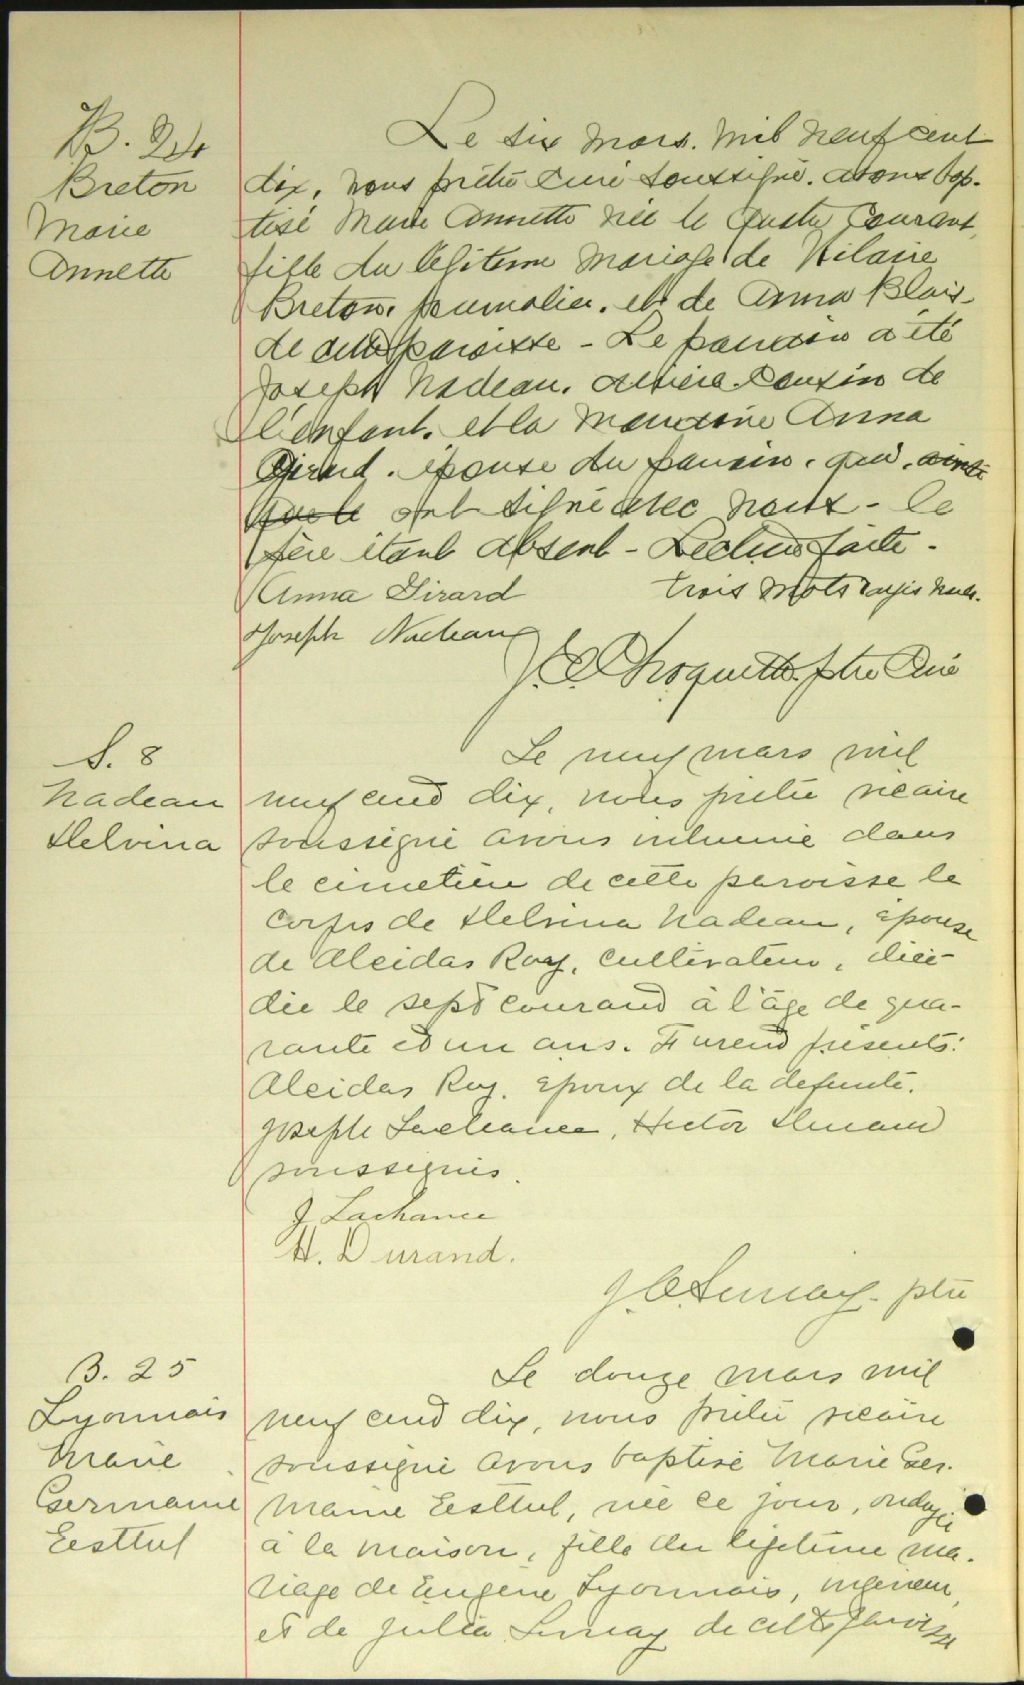 B. 24
Breton
Marie
Annette
Le six mars. mil neuf cent
dix, nous prêtre curé soussigné. avons bap-
tisé Marie Annette née le quatre courant,
fille du légitime mariage de Hilaire
Breton. journalier. et de Anna Blais-
de cette paroisse - Le parrain a été
Joseph Nadeau. arrière-cousin de
l'enfant. et la marraine Anna
Girard. épouse du parrain. qui. ainsi
que le ont signé avec nous - le
père étant absent - Lecture faite.
Anna Girard
trois mots rayés nuls.
Joseph Nadeau
J. E. Choquette. ptre Curé
S. 8
Nadeau
Delvina
Le neuf mars mil
neuf cent dix, nous prêtre vicaire
soussigné avons inhumé dans
le cimetière de cette paroisse le
corps de Delvina Nadeau, épouse
de Alcidas Roy, cultivateur, décé-
dée le sept courant à l'âge de qua-
rante et un ans. Furent présents:
Alcidas Roy. époux de la defunte.
Joseph Lachance, Hector Durand
soussignés.
J Lachance
H. Durand.
J. O. Lemay - ptre
B. 25
Lyonnais
Marie
Germaine
Esttul
Le douze mars mil
neuf cent dix, nous prêtre vicaire
soussigné avons baptisé Marie Ger-
maine Esttul, née ce jour, ondoyée
à la maison, fille du légitime ma-
riage de Eugène Lyonnais, ingénieur,
et de Julia Lemay de cette paroisse